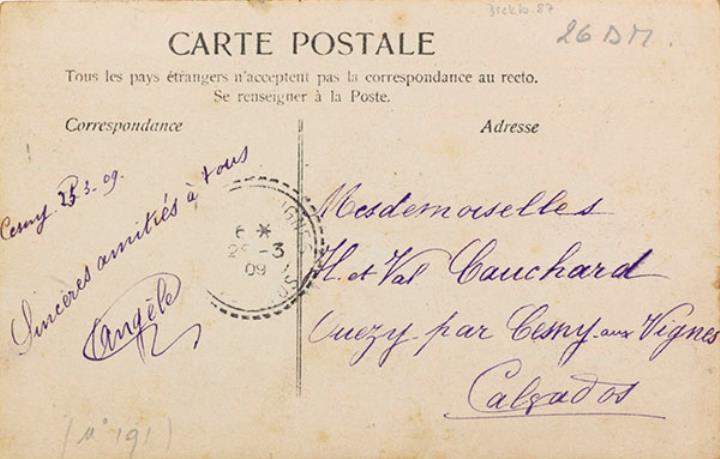 26 DM.
CARTE POSTALE
Tous les pays étrangers n'acceptent pas la correspondance au recto.
Se renseigner à la Poste.
Correspondance
Adresse
Cesny 3. 09.
Sincères amitiés à tous
Angèle
6 *
-3
09
Mesdemoiselles
H. et Val Cauchard
Ouezy par Cesny aux Vignes
Calvados
(N° 191)